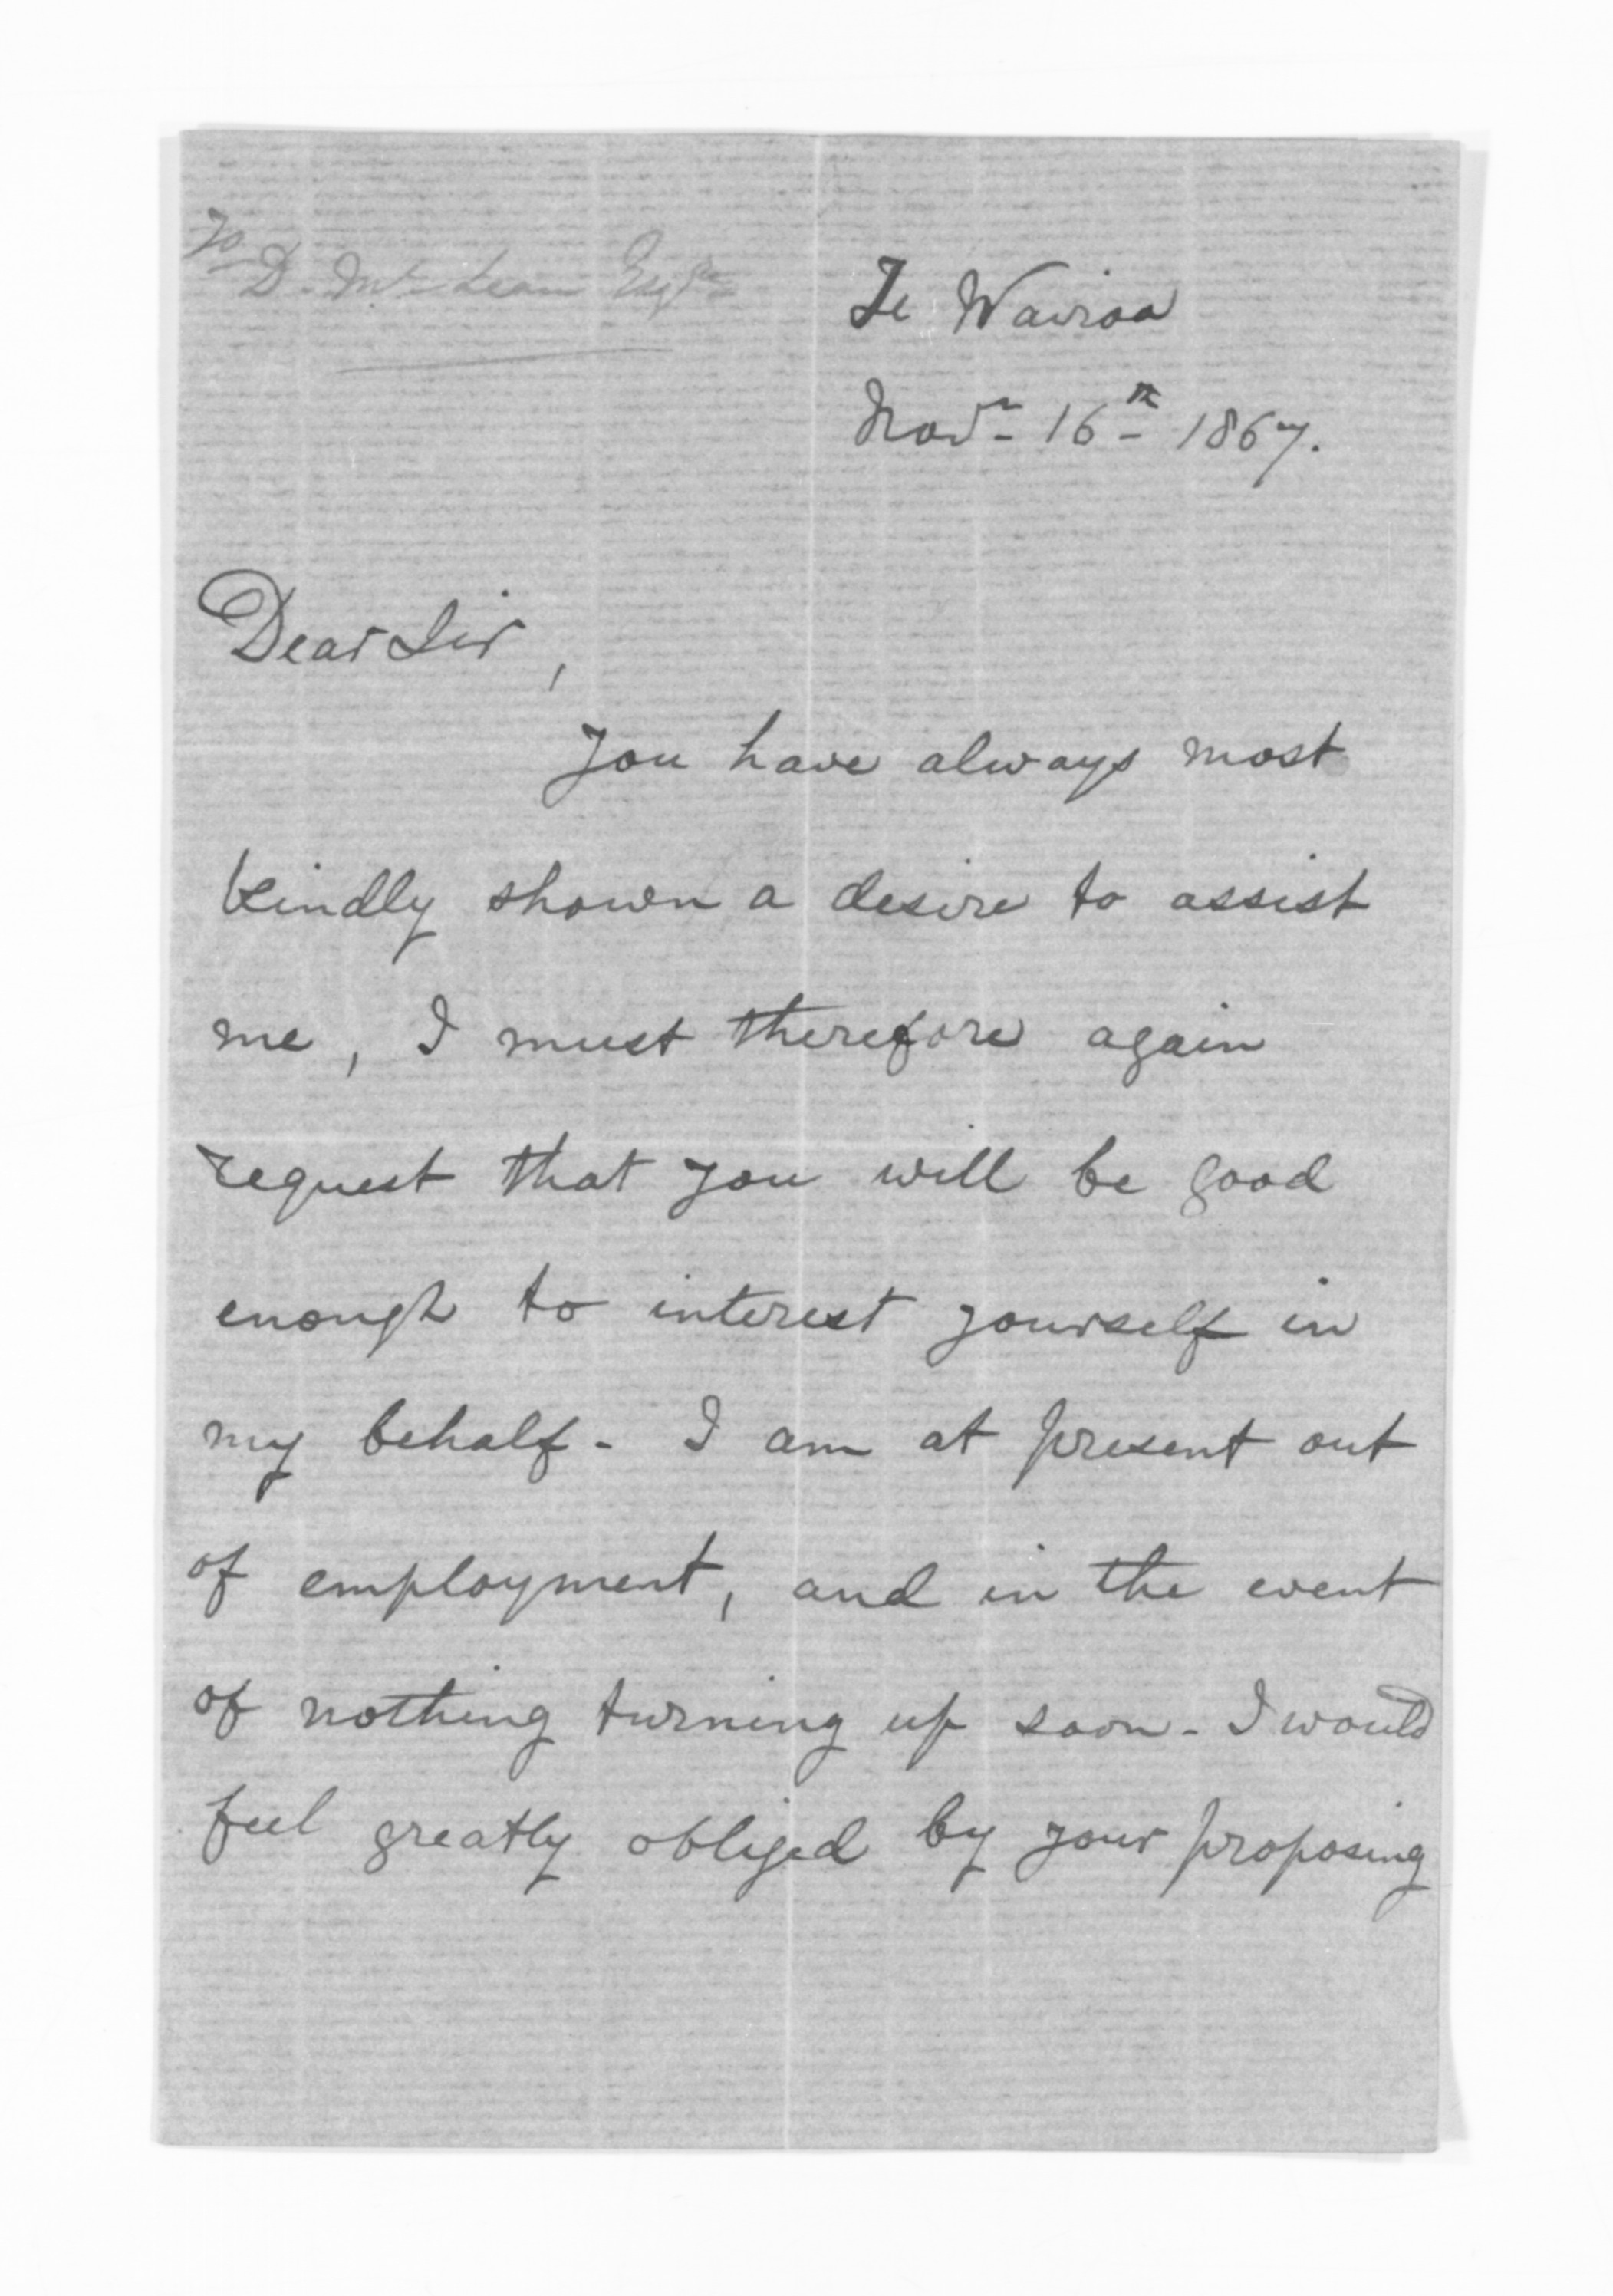 To
D. McLean Esqre
Te Wairoa
Novr 16th 1867.
Dear Sir,
You have always most
kindly shown a desire to assist
me, I must therefore again
request that you will be good
enough to interest yourself in
my behalf - I am at present out
of employment, and in the event
of nothing turning up soon - I would
feel greatly obliged by your proposing